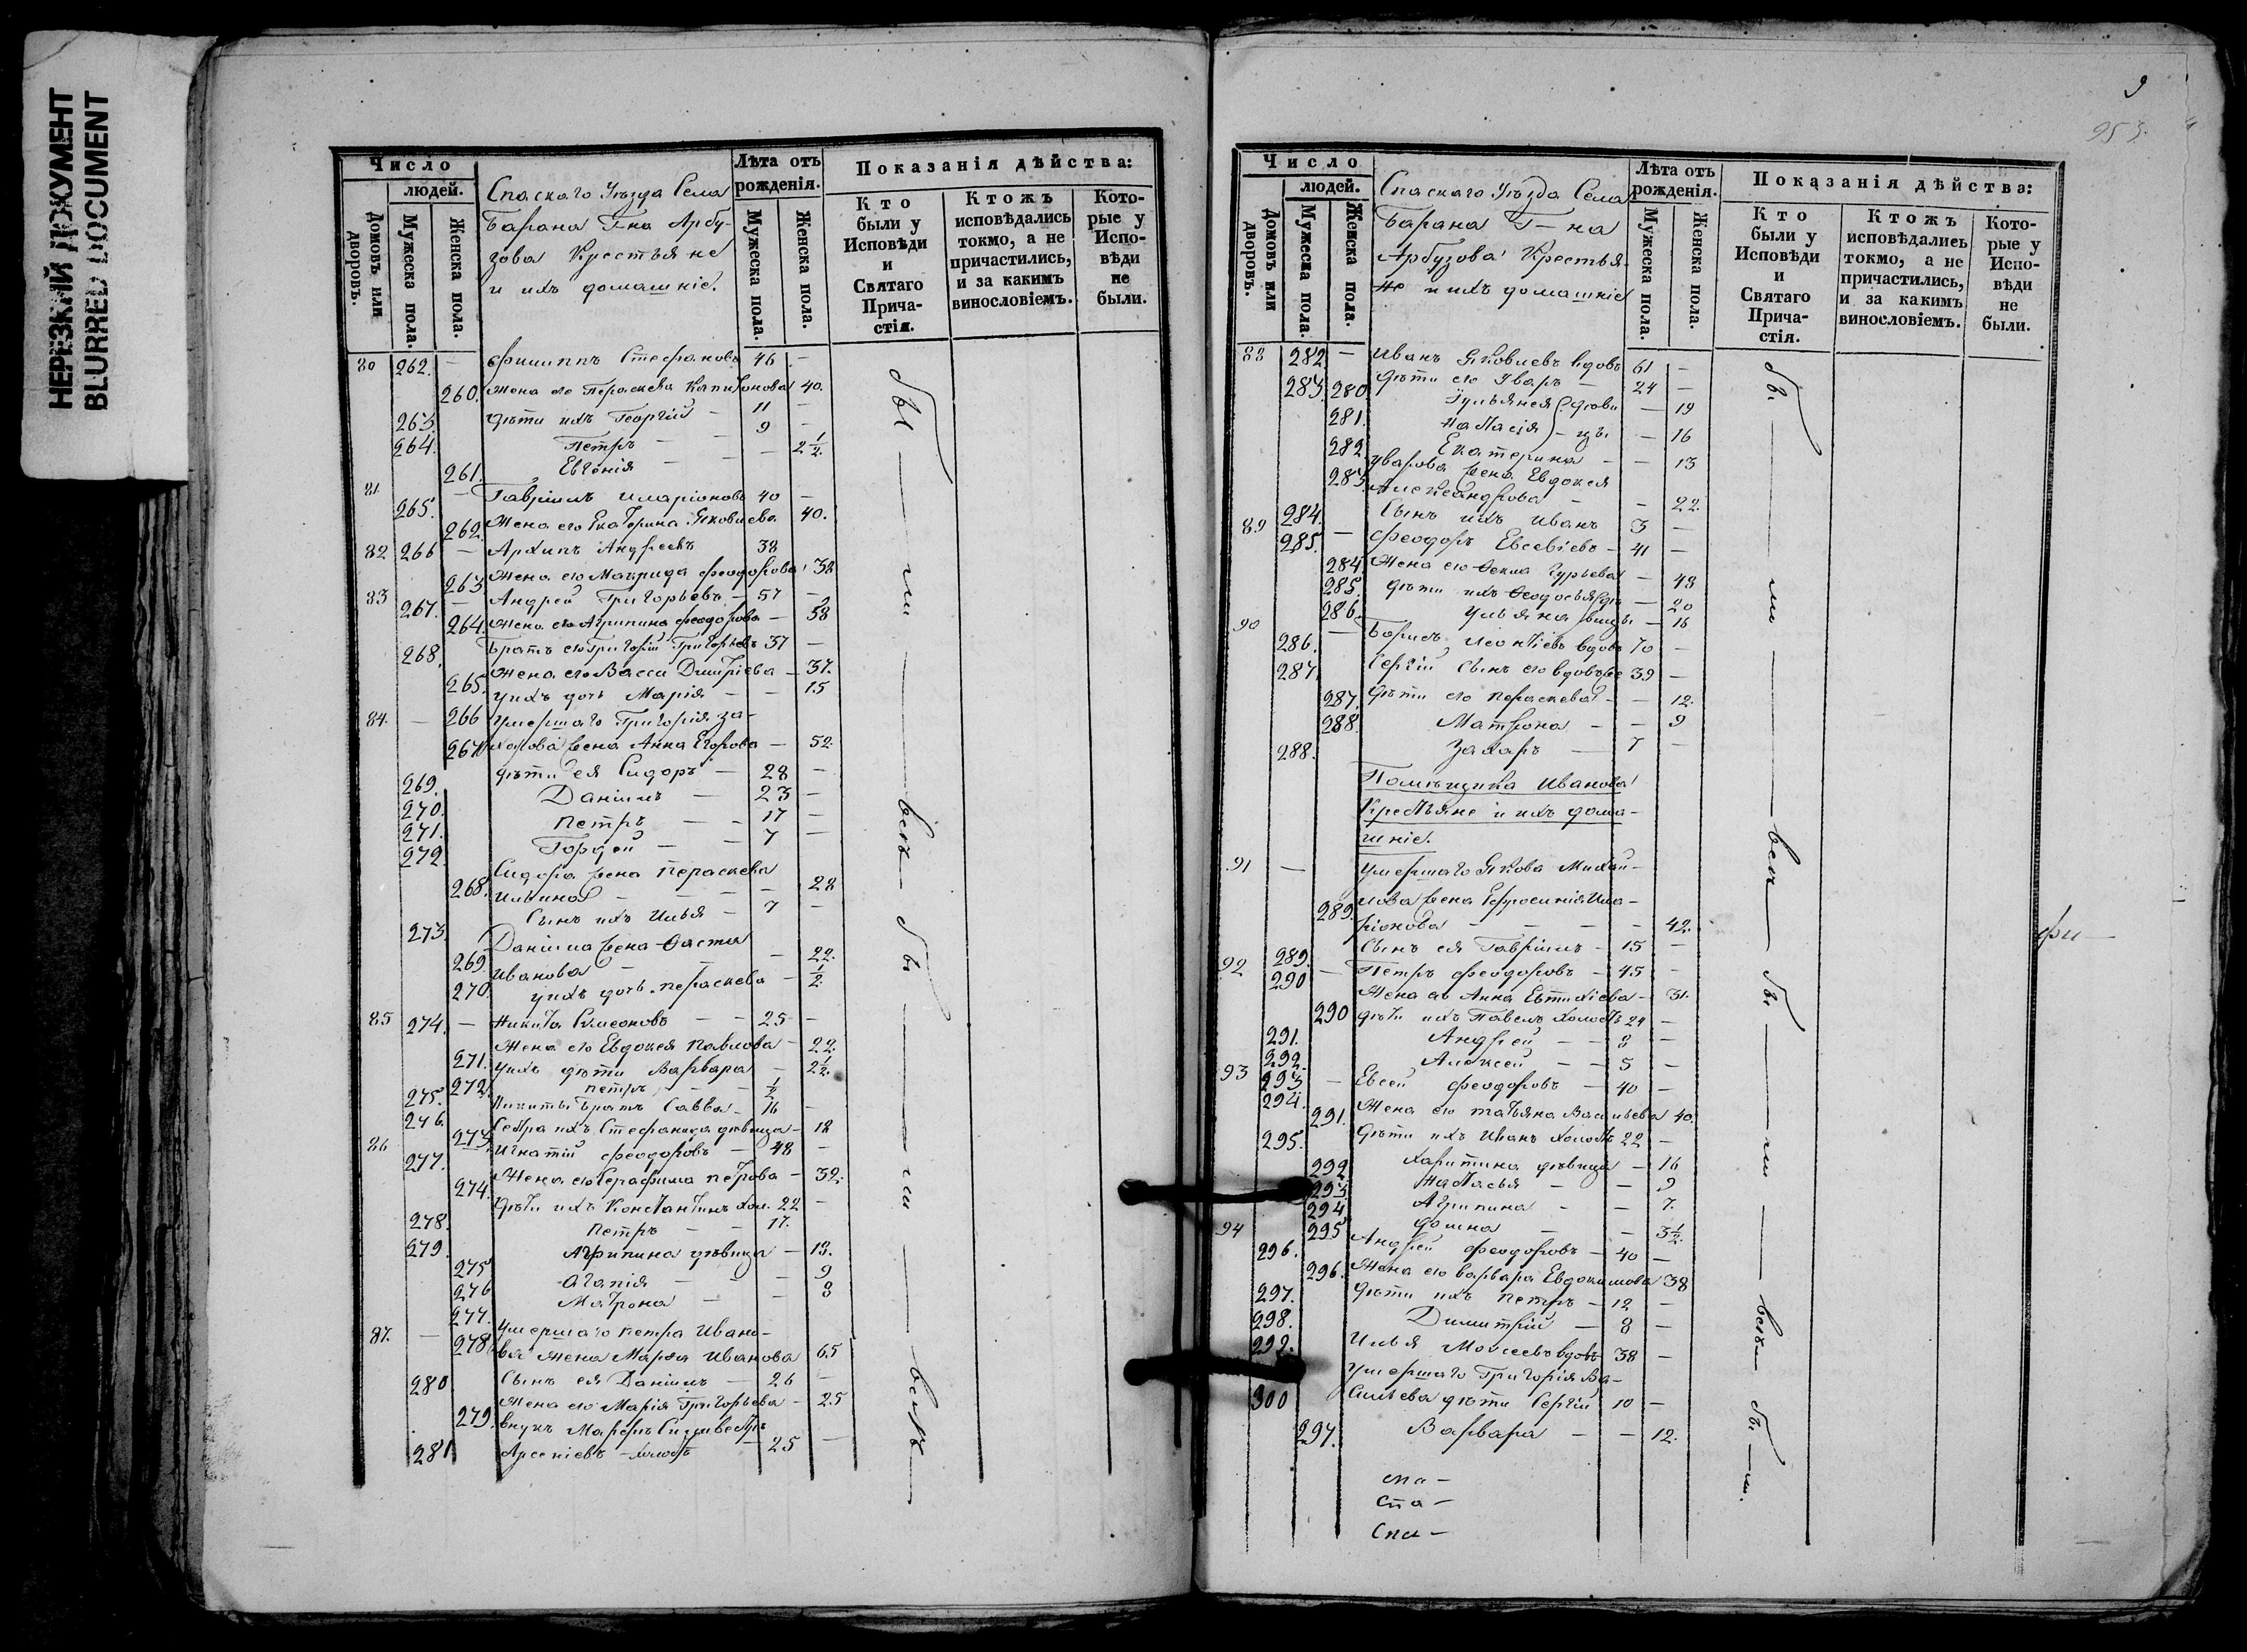 НЕРЕЗКИЙ ДОКУМЕНТ
BLURRED DOCUMENT
Число
людей.
Домовъ или дворовъ.
Мужеска пола.
Женска пола.
Спаскаго Уѣзда Села
Барана Г-на Арбу-
зова Крестьяне
и ихъ домашніе.
Лѣта отъ рожденія.
Мужеска пола.
Женска пола.
Показанія дѣйства:
Кто были у Исповѣди и Святаго Прича-стія.
Ктожъ исповѣдались токмо, а не причастились, и за какимъ винословіемъ.
Кото-рые у Испо-вѣди не были.
80 262. — Филиппъ Стефановъ 46 —
260. Жена его Параскева Капитонова 40.
263. Дѣти ихъ Георгій — 11 —
264. Петръ — 9 —
261. Евгенія — — 2 1/2
81 265. — Гавріилъ Иларіоновъ 40 —
262. Жена его Екатерина Яковлева 40.
82 266 — Архипъ Андреевъ 38
263 Жена его Макрида Феодорова 38
83 267. — Андрей Григорьевъ — 57 —
264. Жена его Агрипина Феодорова — 58
268. Братъ его Григорій Григорьевъ 37 —
265. Жена его Васса Димитріева — 37.
266 У ихъ дочь Марія — — 15
84. — Умершаго Григорія За-
267 харова жена Анна Егорова — 52.
269. Дѣти ея Сидоръ — 28 —
270. Даніилъ — 23 —
271. Петръ — 17 —
272. Гордей — 7 —
Сидора жена Пераскева
268. Ильина — — 28
273. Сынъ ихъ Илья — 7 —
Даніила жена
269 Иванова — — 22.
270. у ихъ дочь Пераскева — 1/2
85 274. — Никита Симеоновъ — 25 —
271. Жена его Евдокея Павлова — 22.
272. У ихъ дѣти Варвара — 2 1/2.
275. Петръ — 1/2
276. Никиты братъ Савва — 16 —
273. Сестра ихъ Стефанида дѣвица — 18
86 277. Игнатій Феодоровъ — 48 —
274. Жена его Серафима Петрова — 32.
278. Дѣти ихъ Константинъ хол. 22 —
279. Петръ — 17.
275 Агрипина дѣвица — 13.
276 Агапія — — 9
277. Матрона — — 8
87. — Умершаго Петра Ивано-
278 ва жена Марѳа Иванова 65
280 Сынъ ея Даніилъ — 26 —
279. Жена его Марія Григорьева — 25
281. Арсеніевъ — холостъ — 25 —
бы — ли — всѣ — бы — ли — всѣ —
9
953.
Число
людей.
Домовъ или дворовъ.
Мужеска пола.
Женска пола.
Спаскаго Уѣзда Села
Барана Г-на
Арбузова Крестья-
не и ихъ домашніе
Лѣта отъ рожденія.
Мужеска пола.
Женска пола.
Показанія дѣйства:
Кто были у Исповѣди и Святаго Прича-стія.
Ктожъ исповѣдались токмо, а не причастились, и за какимъ винословіемъ.
Кото-рые у Испо-вѣди не были.
88 282. — Иванъ Яковлевъ вдовъ 61 —
283. Дѣти его Уваръ — 24 —
280. Іульянея дѣви- — 19
281. Наталія -цы — 16
282. Екатерина — — 13
Уварова жена Евдокея
283. Александрова — — 22.
284. Сынъ ихъ Иванъ 3 —
89 285. — Феодоръ Евсевіевъ — 41 —
284. Жена его Ѳекла Гурьева — 43
285. Дѣти ихъ Ѳеодосья дѣ- — 20
286. Ульяна -вицы — 18
90 286. — Борисъ Леонтіевъ вдовъ 70 —
287. Сергій сынъ его вдовъ 39 —
287. Дѣти его Пераскева — — 12.
288. Матрона — — 9
288. Захаръ — 7 —
Помѣщика Иванова
Крестьяне и ихъ дома-
шніе.
91 — Умершаго Якова Михай-
289. лова жена Ефросинія Ила-
ріонова — — — 42.
289. Сынъ ея Гавріилъ — 15 —
92 290 — Петръ Феодоровъ — 45 —
290 Жена его Анна Евтихіева — 31.
291. Дѣти ихъ Павелъ холостъ 24 —
292. Андрей — — 8 —
293 Алексей — — 5 —
93 294. — Евсей Феодоровъ — 40 —
291. Жена его Татьяна Васильева 40.
295. Дѣти ихъ Иванъ холостъ 22 —
292. Харитина дѣвица — 16
293. Наталья — — 9
294 Агрипина — — 7.
295 Домна — — 3 1/2.
94 296. Андрей Феодоровъ — 40 —
296. Жена его Варвара Евдокимова 38
297. Дѣти ихъ Петръ — 12 —
298. Димитрій — 8 —
299. Илья Моисеевъ вдовъ 38 —
Умершаго Григорія Ва-
300 сильева дѣти Сергій 10 —
297. Варвара — — 12.
Спа —
Спа —
Спа —
бы — ли — всѣ — бы — ли — всѣ — бы — ли.